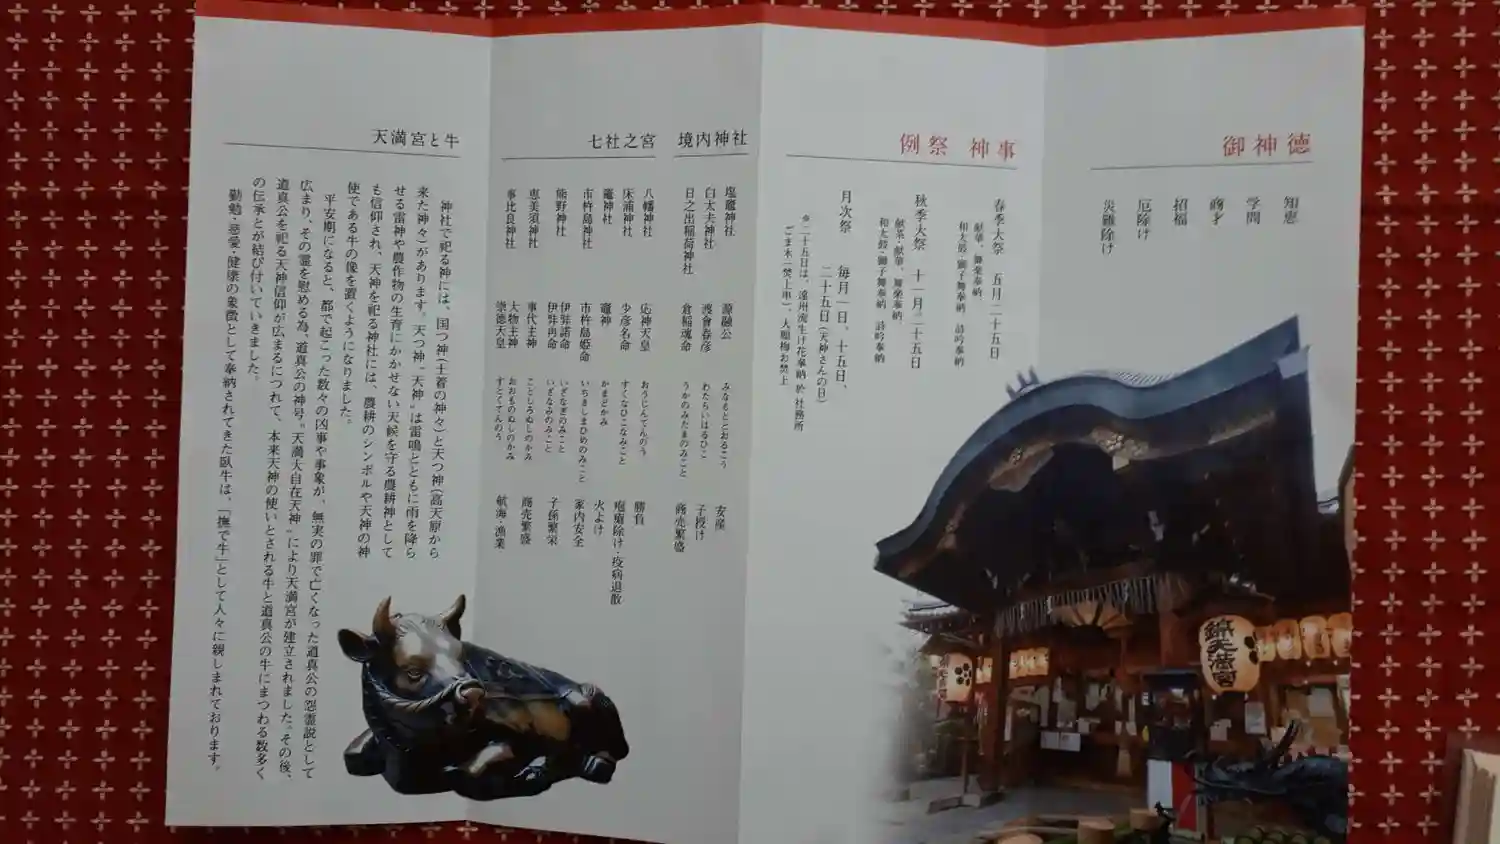 御神徳
知恵
学問
商才
招福
厄除け
災難除け
例祭 神事
春季大祭 五月二十五日
献華、舞楽奉納、
和太鼓・獅子舞奉納、詩吟奉納
秋季大祭 十一月二十五日
献茶・献華、舞楽奉納、
和太鼓・獅子舞奉納、詩吟奉納
月次祭 毎月一日、十五日、
二十五日(天神さんの日)
※二十五日は、遠州流生け花奉納 於 社務所
ごま木一焚上串)、大願梅お焚上
境内神社
塩竈神社 源融公 みなもととおるこう 安産
白太夫神社 渡會春彦 わたらいはるひこ 子授け
日之出稲荷神社 倉稲魂命 うかのみたまのみこと 商売繁盛
七社之宮
八幡神社 応神天皇 おうじんてんのう 勝負
床浦神社 少彦名命 すくなひこなみこと 疱瘡除け・疫病退散
竈神社 竈神 かまどかみ 火よけ
市杵島神社 市杵島姫命 いちきしまひめのみこと 家内安全
熊野神社 伊弉諾命 いざなぎのみこと 子孫繁栄
伊弉冉命 いざなみのみこと
恵美須神社 事代主神 ことしろぬしのかみ 商売繁盛
事比良神社 大物主神 おおものぬしのかみ 航海・漁業
崇徳天皇 すとくてんのう
天満宮と牛
神社で祀る神には、国つ神(土着の神々)と天つ神(高天原から
来た神々)があります。天つ神〝天神〟は雷鳴とともに雨を降ら
せる雷神や農作物の生育にかかせない天候を守る農耕神として
も信仰され、天神を祀る神社には、農耕のシンボルや天神の神
使である牛の像を置くようになりました。
平安期になると、都で起こった数々の凶事や事象が、無実の罪で亡くなった道真公の怨霊説として
広まり、その霊を慰める為、道真公の神号〝天満大自在天神〟により天満宮が建立されました。その後、
道真公を祀る天神信仰が広まるにつれて、本来天神の使いとされる牛と道真公の牛にまつわる数多く
の伝承とが結び付いていきました。
勤勉・慈愛・健康の象徴として奉納されてきた臥牛は、「撫で牛」として人々に親しまれております。
錦天満宮